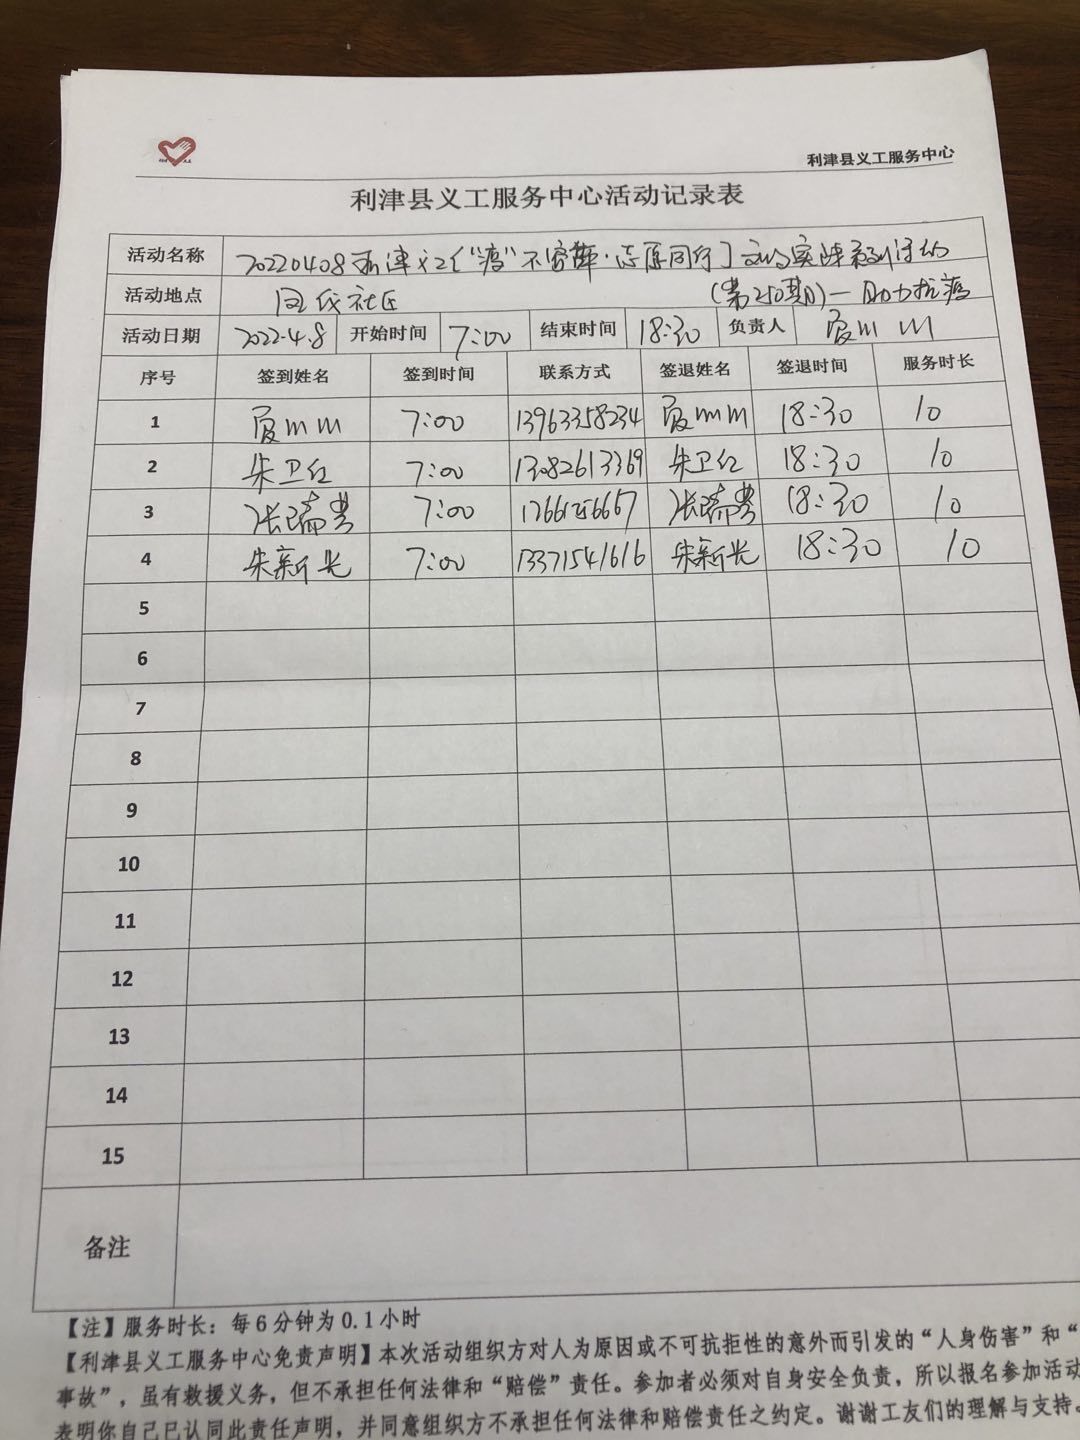 利津县义工服务中心
利津县义工服务中心活动记录表
活动名称 20220408利津义工“疫”不容辞·志愿同行 文明实践系列活动
(第250期)—助力抗疫
活动地点 社区
活动日期 2022.4.8 开始时间 7:00 结束时间 18:30 负责人
序号 签到姓名 签到时间 联系方式 签退姓名 签退时间 服务时长
1 7:00 13963358234 18:30 10
2 朱卫红 7:00 13082613369 朱卫红 18:30 10
3 张瑞 7:00 张瑞 18:30 10
4 朱新光 7:00 13371541616 朱新光 18:30 10
5
6
7
8
9
10
11
12
13
14
15
备注
【注】服务时长：每6分钟为0.1小时
【利津县义工服务中心免责声明】本次活动组织方对人为原因或不可抗拒性的意外而引发的“人身伤害”和“
事故”，虽有救援义务，但不承担任何法律和“赔偿”责任。参加者必须对自身安全负责，所以报名参加活动
表明你自己已认同此责任声明，并同意组织方不承担任何法律和赔偿责任之约定。谢谢工友们的理解与支持。